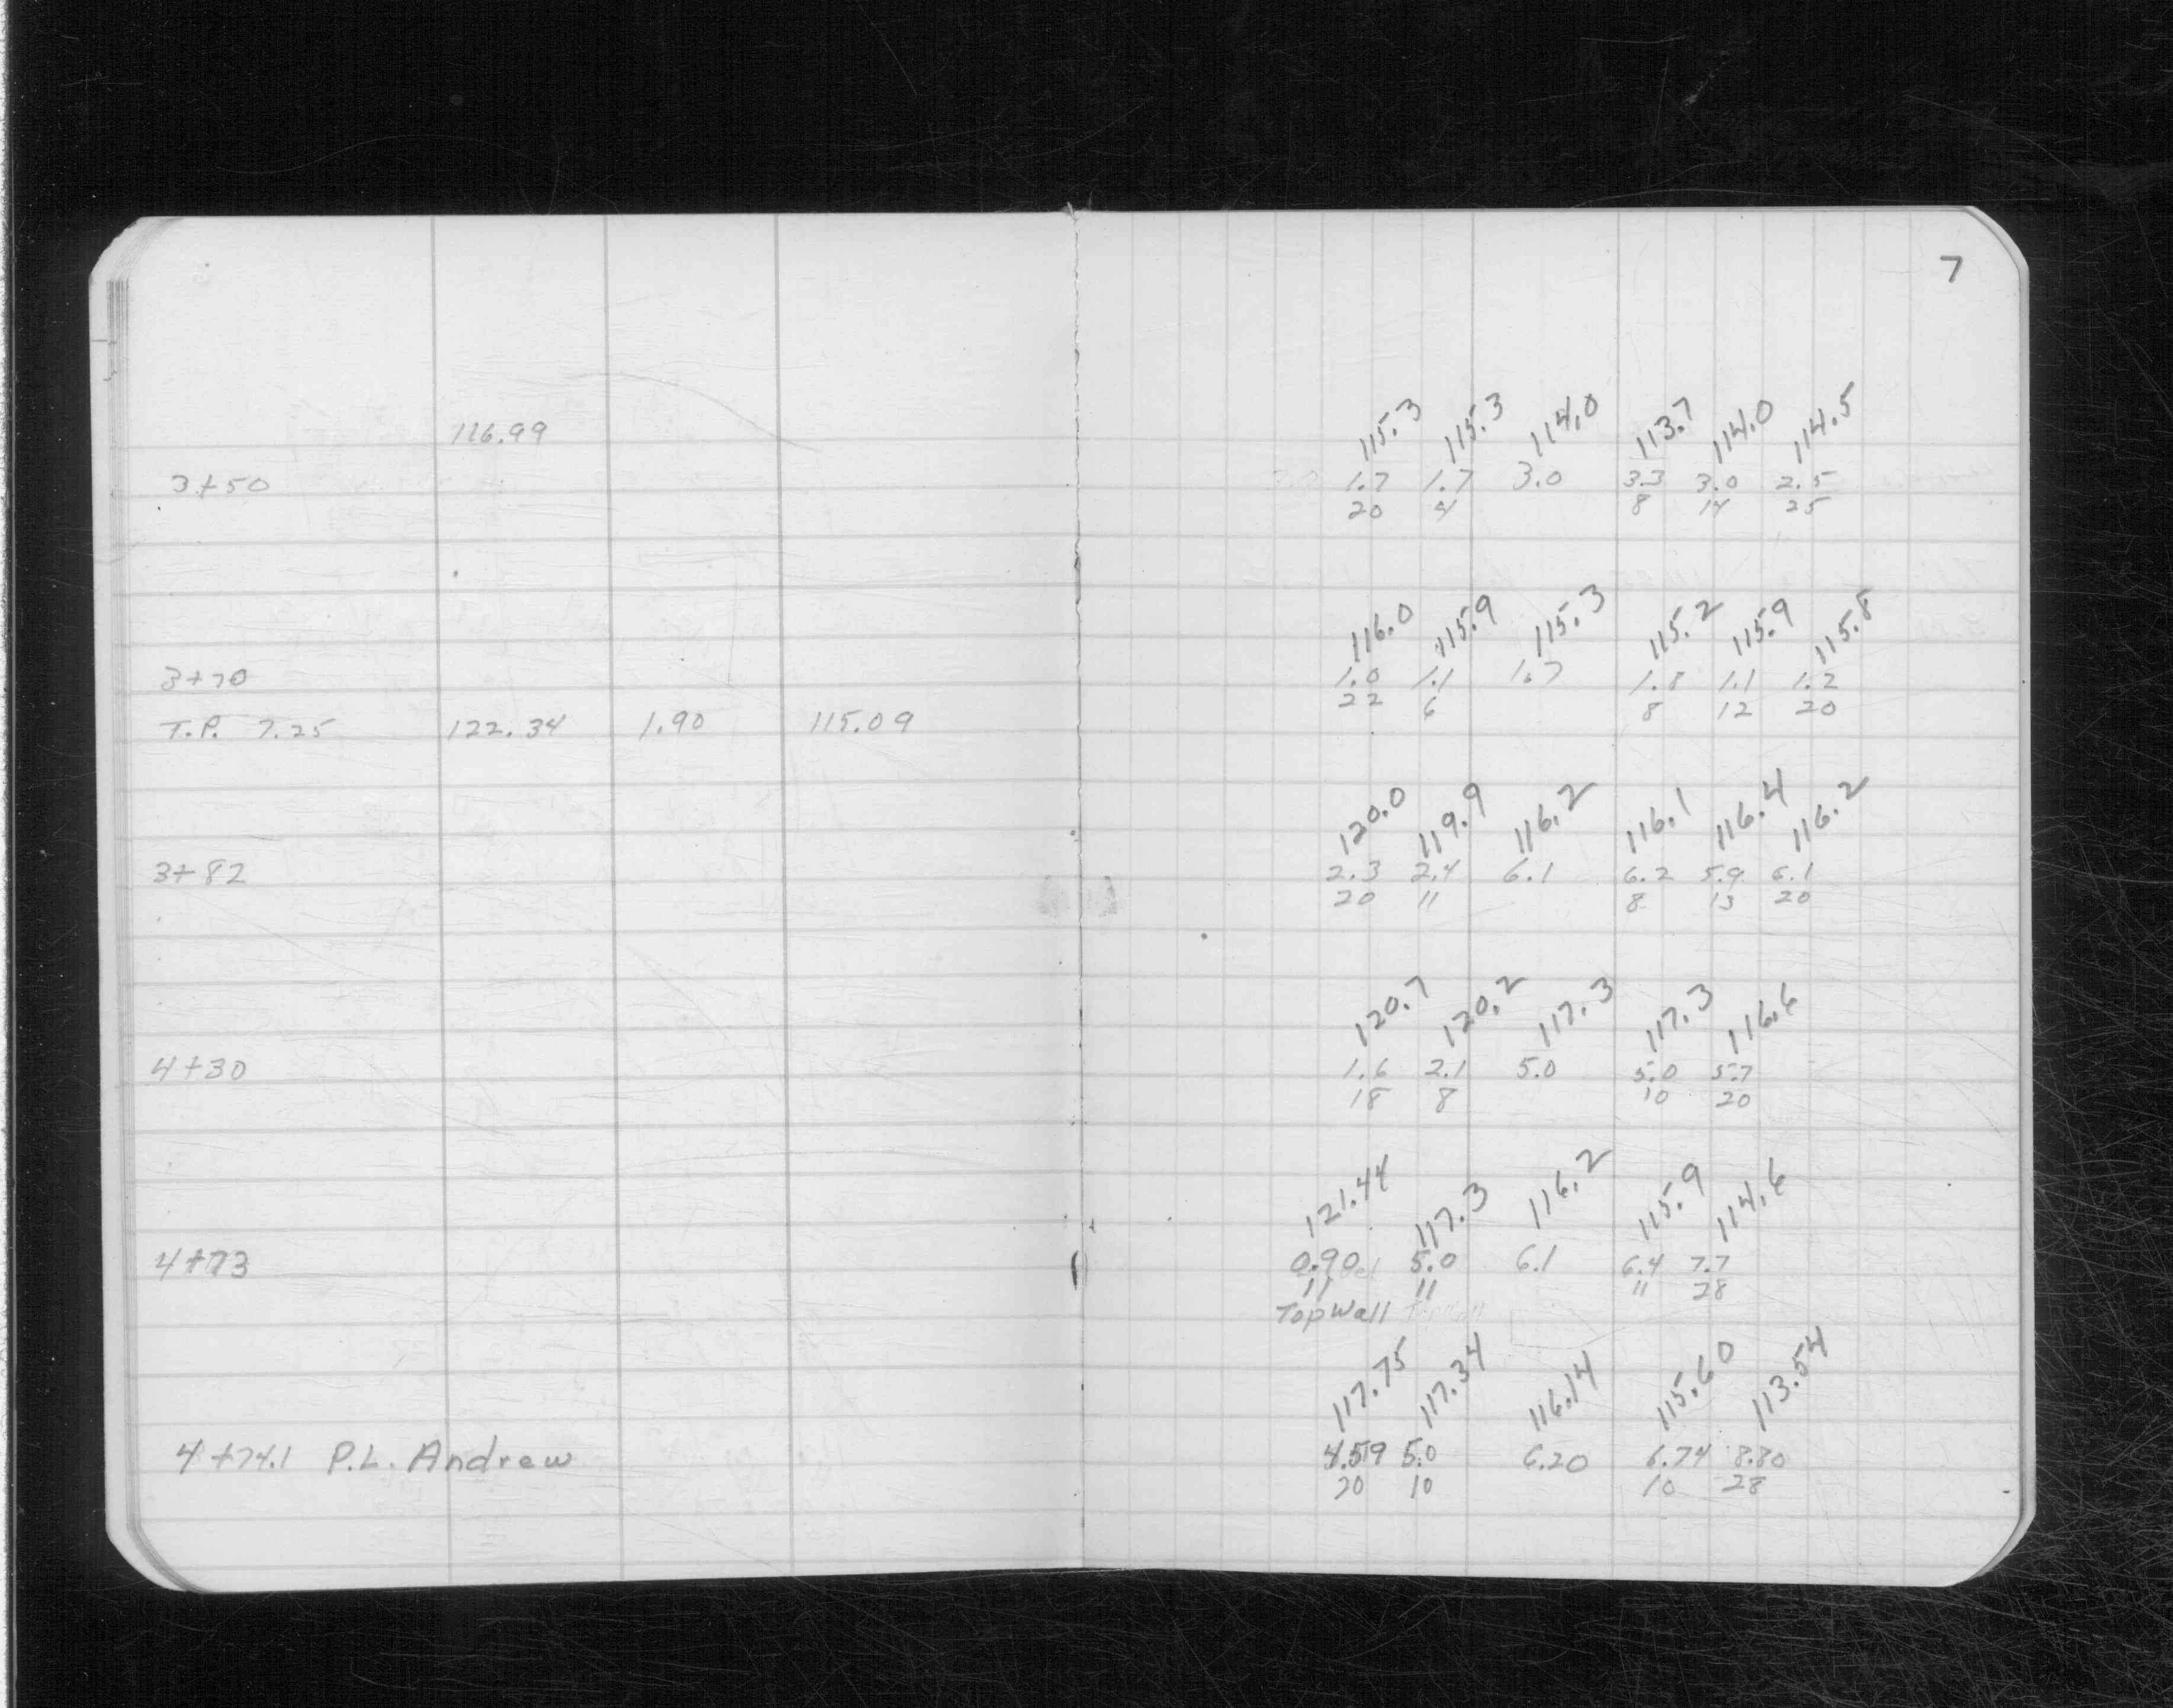 7
116.99
115.3 115.3 114.0 113.7 114.0 114.5
3+50 1.7 1.7 3.0 3.3 3.0 2.5
20 4 8 14 25
116.0 115.9 115.3 115.2 115.9 115.8
3+70 1.0 1.1 1.7 1.8 1.1 1.2
22 6 8 12 20
T.P. 7.25 122.34 1.90 115.09
120.0 119.9 116.2 116.1 116.4 116.2
3+82 2.3 2.4 6.1 6.2 5.9 6.1
20 11 8 13 20
120.7 120.2 117.3 117.3 116.6
4+30 1.6 2.1 5.0 5.0 5.7
18 8 10 20
121.44 117.3 116.2 115.9 114.6
4+73 0.90 5.0 6.1 6.4 7.7
11 11 11 28
Top Wall
117.75 117.34 116.14 115.60 113.54
4+74.1 P.L. Andrew 4.59 5.0 6.20 6.74 8.80
20 10 10 28